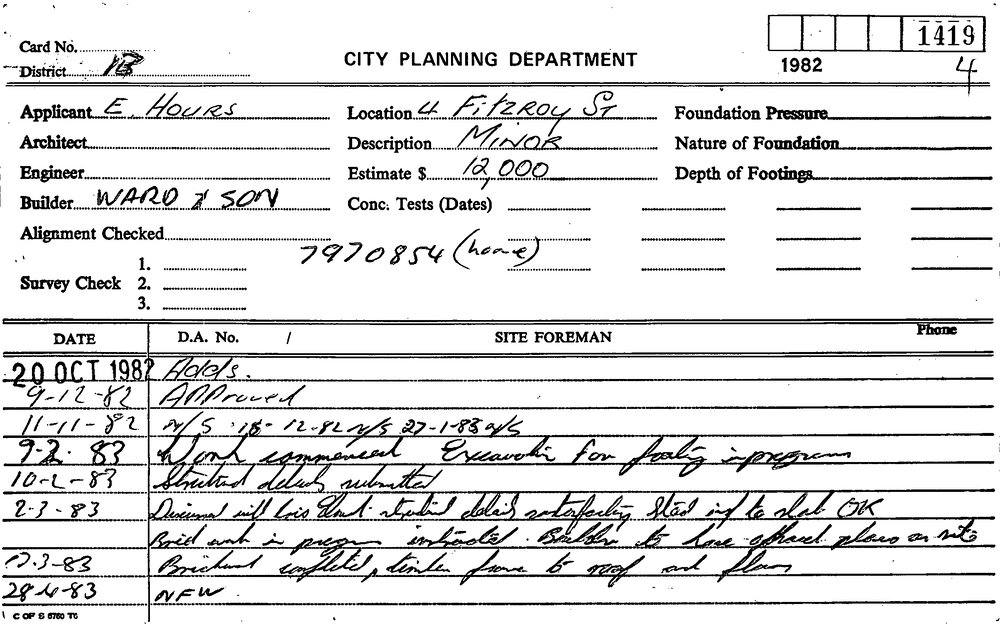 1419
Card No.
CITY PLANNING DEPARTMENT
1982
4
District 1B
Applicant E. HOURS
Location 4 FITZROY ST
Foundation Pressure
Architect
Description MINOR
Nature of Foundation
Engineer
Estimate $ 12,000
Depth of Footings
Builder WARD & SON
Conc. Tests (Dates)
Alignment Checked
7970854 (home)
Survey Check 1.
2.
3.
DATE D.A. No. / SITE FOREMAN Phone
20 OCT 1982 Adds.
9-12-82 APProved
11-11-82 N/S 18-12-82 N/S 27-1-83 N/S
9-2-83 Work commenced Excavation For footing in progress
10-2-83 Structural details submitted
2-3-83 Discussed with details satisfactory Steel to slab OK
Brick work in progress instructed Builder to have approved plans on site
Brickwork completed, timber frame to roof and floors
28-4-83 NFW.
C OF S 5760 TC